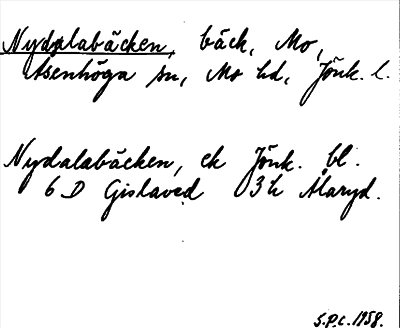 Nydalabäcken, bäck, Mo,
Åsenhöga sn, Mo hd, Jönk. l.
Nydalabäcken, ek Jönk. bl.
6 D Gislaved 03h Ålaryd.
S.P.C. 1958.